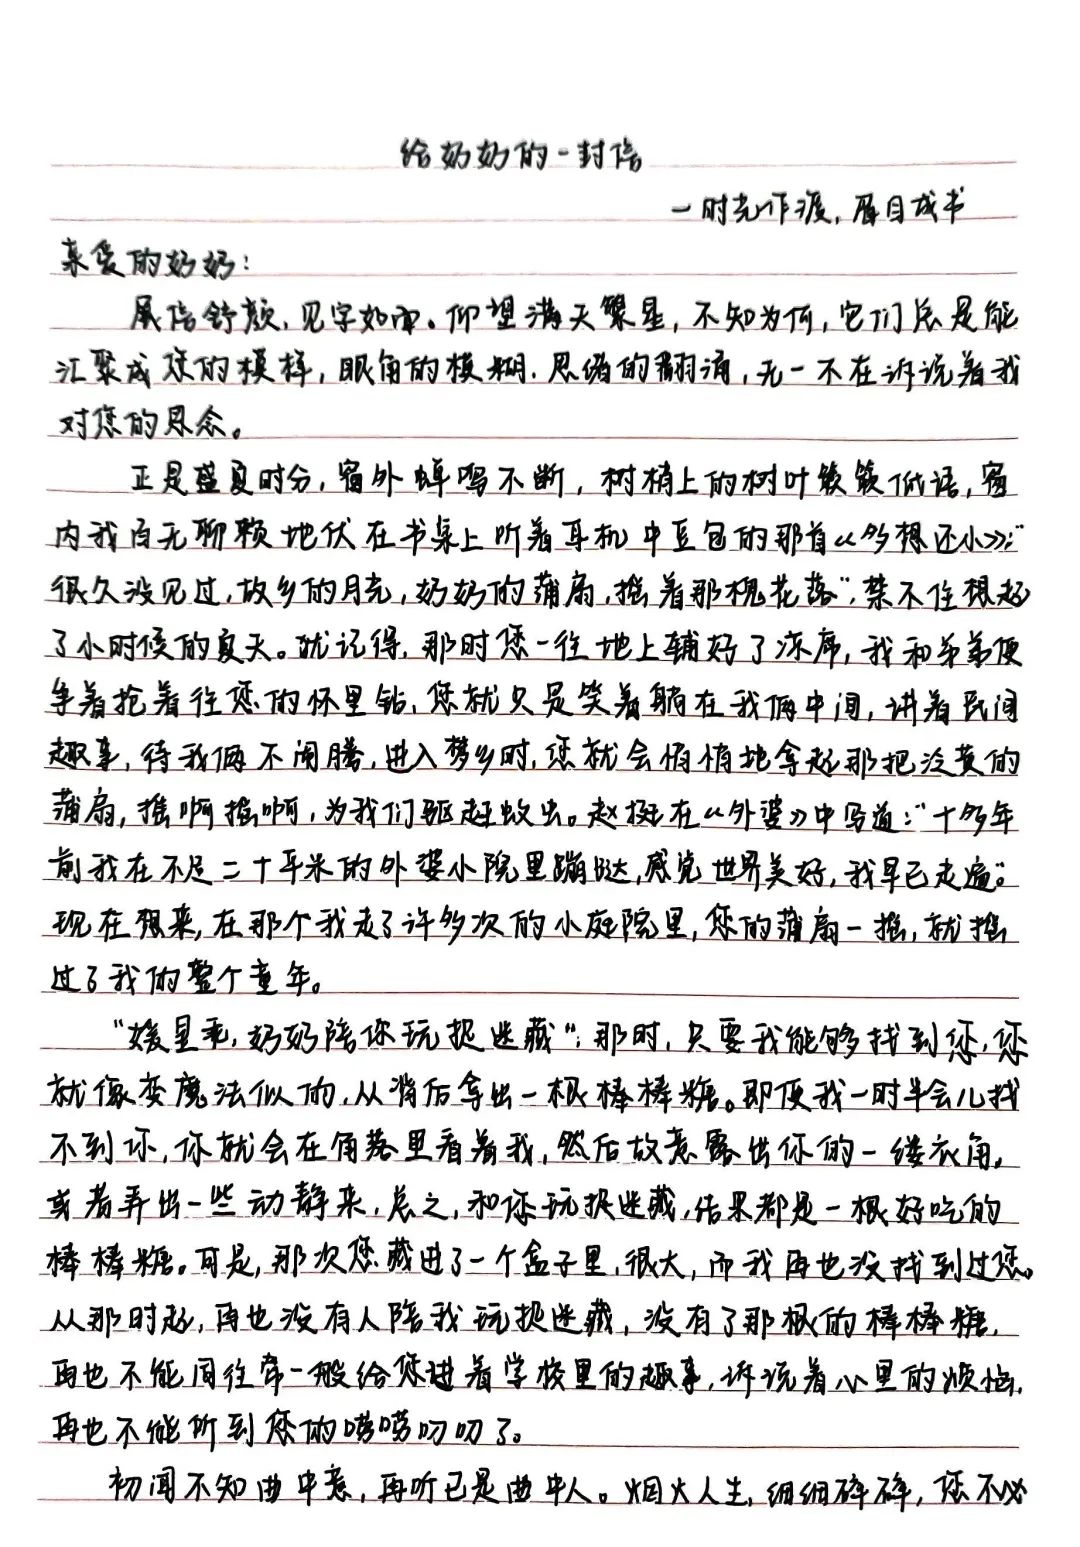 给奶奶的一封信
一时光作渡,眉目成书
亲爱的奶奶:
展信舒颜,见字如面。仰望满天繁星,不知为何,它们总是能
汇聚成您的模样,眼角的模糊.思绪的翻涌,无一不在诉说着我
对您的思念。
正是盛夏时分,窗外蝉鸣不断,树梢上的树叶簌簌低语,窗
内我百无聊赖地伏在书桌上听着耳机中豆包的那首《多想还小》:“
很久没见过,故乡的月光,奶奶的蒲扇,摇着那槐花落”,禁不住想起
了小时候的夏天。犹记得,那时您一往地上铺好了凉席,我和弟弟便
争着抢着往您的怀里钻,您就只是笑着躺在我俩中间,讲着民间
趣事,待我俩不闹腾,进入梦乡时,您就会悄悄地拿起那把泛黄的
蒲扇,摇啊摇啊,为我们驱赶蚊虫。赵挺在《外婆》中写道:“十多年
前我在不足二十平米的外婆小院里蹦哒,感觉世界美好,我早已走遍”。
现在想来,在那个我走了许多次的小庭院里,您的蒲扇一摇,就摇
过了我的整个童年。
“媛星乖,奶奶陪你玩捉迷藏“;那时,只要我能够找到您,您
就像变魔法似的,从背后拿出一根棒棒糖。即便我一时半会儿找
不到你,你就会在角落里看着我,然后故意露出你的一缕衣角,
或者弄出一些动静来,总之,和你玩捉迷藏,结果都是一根好吃的
棒棒糖。可是,那次您藏进了一个盒子里,很大,而我再也没找到过您。
从那时起,再也没有人陪我玩捉迷藏,没有了那根的棒棒糖,
再也不能同往常一般给您讲着学校里的趣事,诉说着心里的烦恼,
再也不能听到您的唠唠叨叨了。
初闻不知曲中意,再听已是曲中人。烟火人生,细细碎碎,您不必